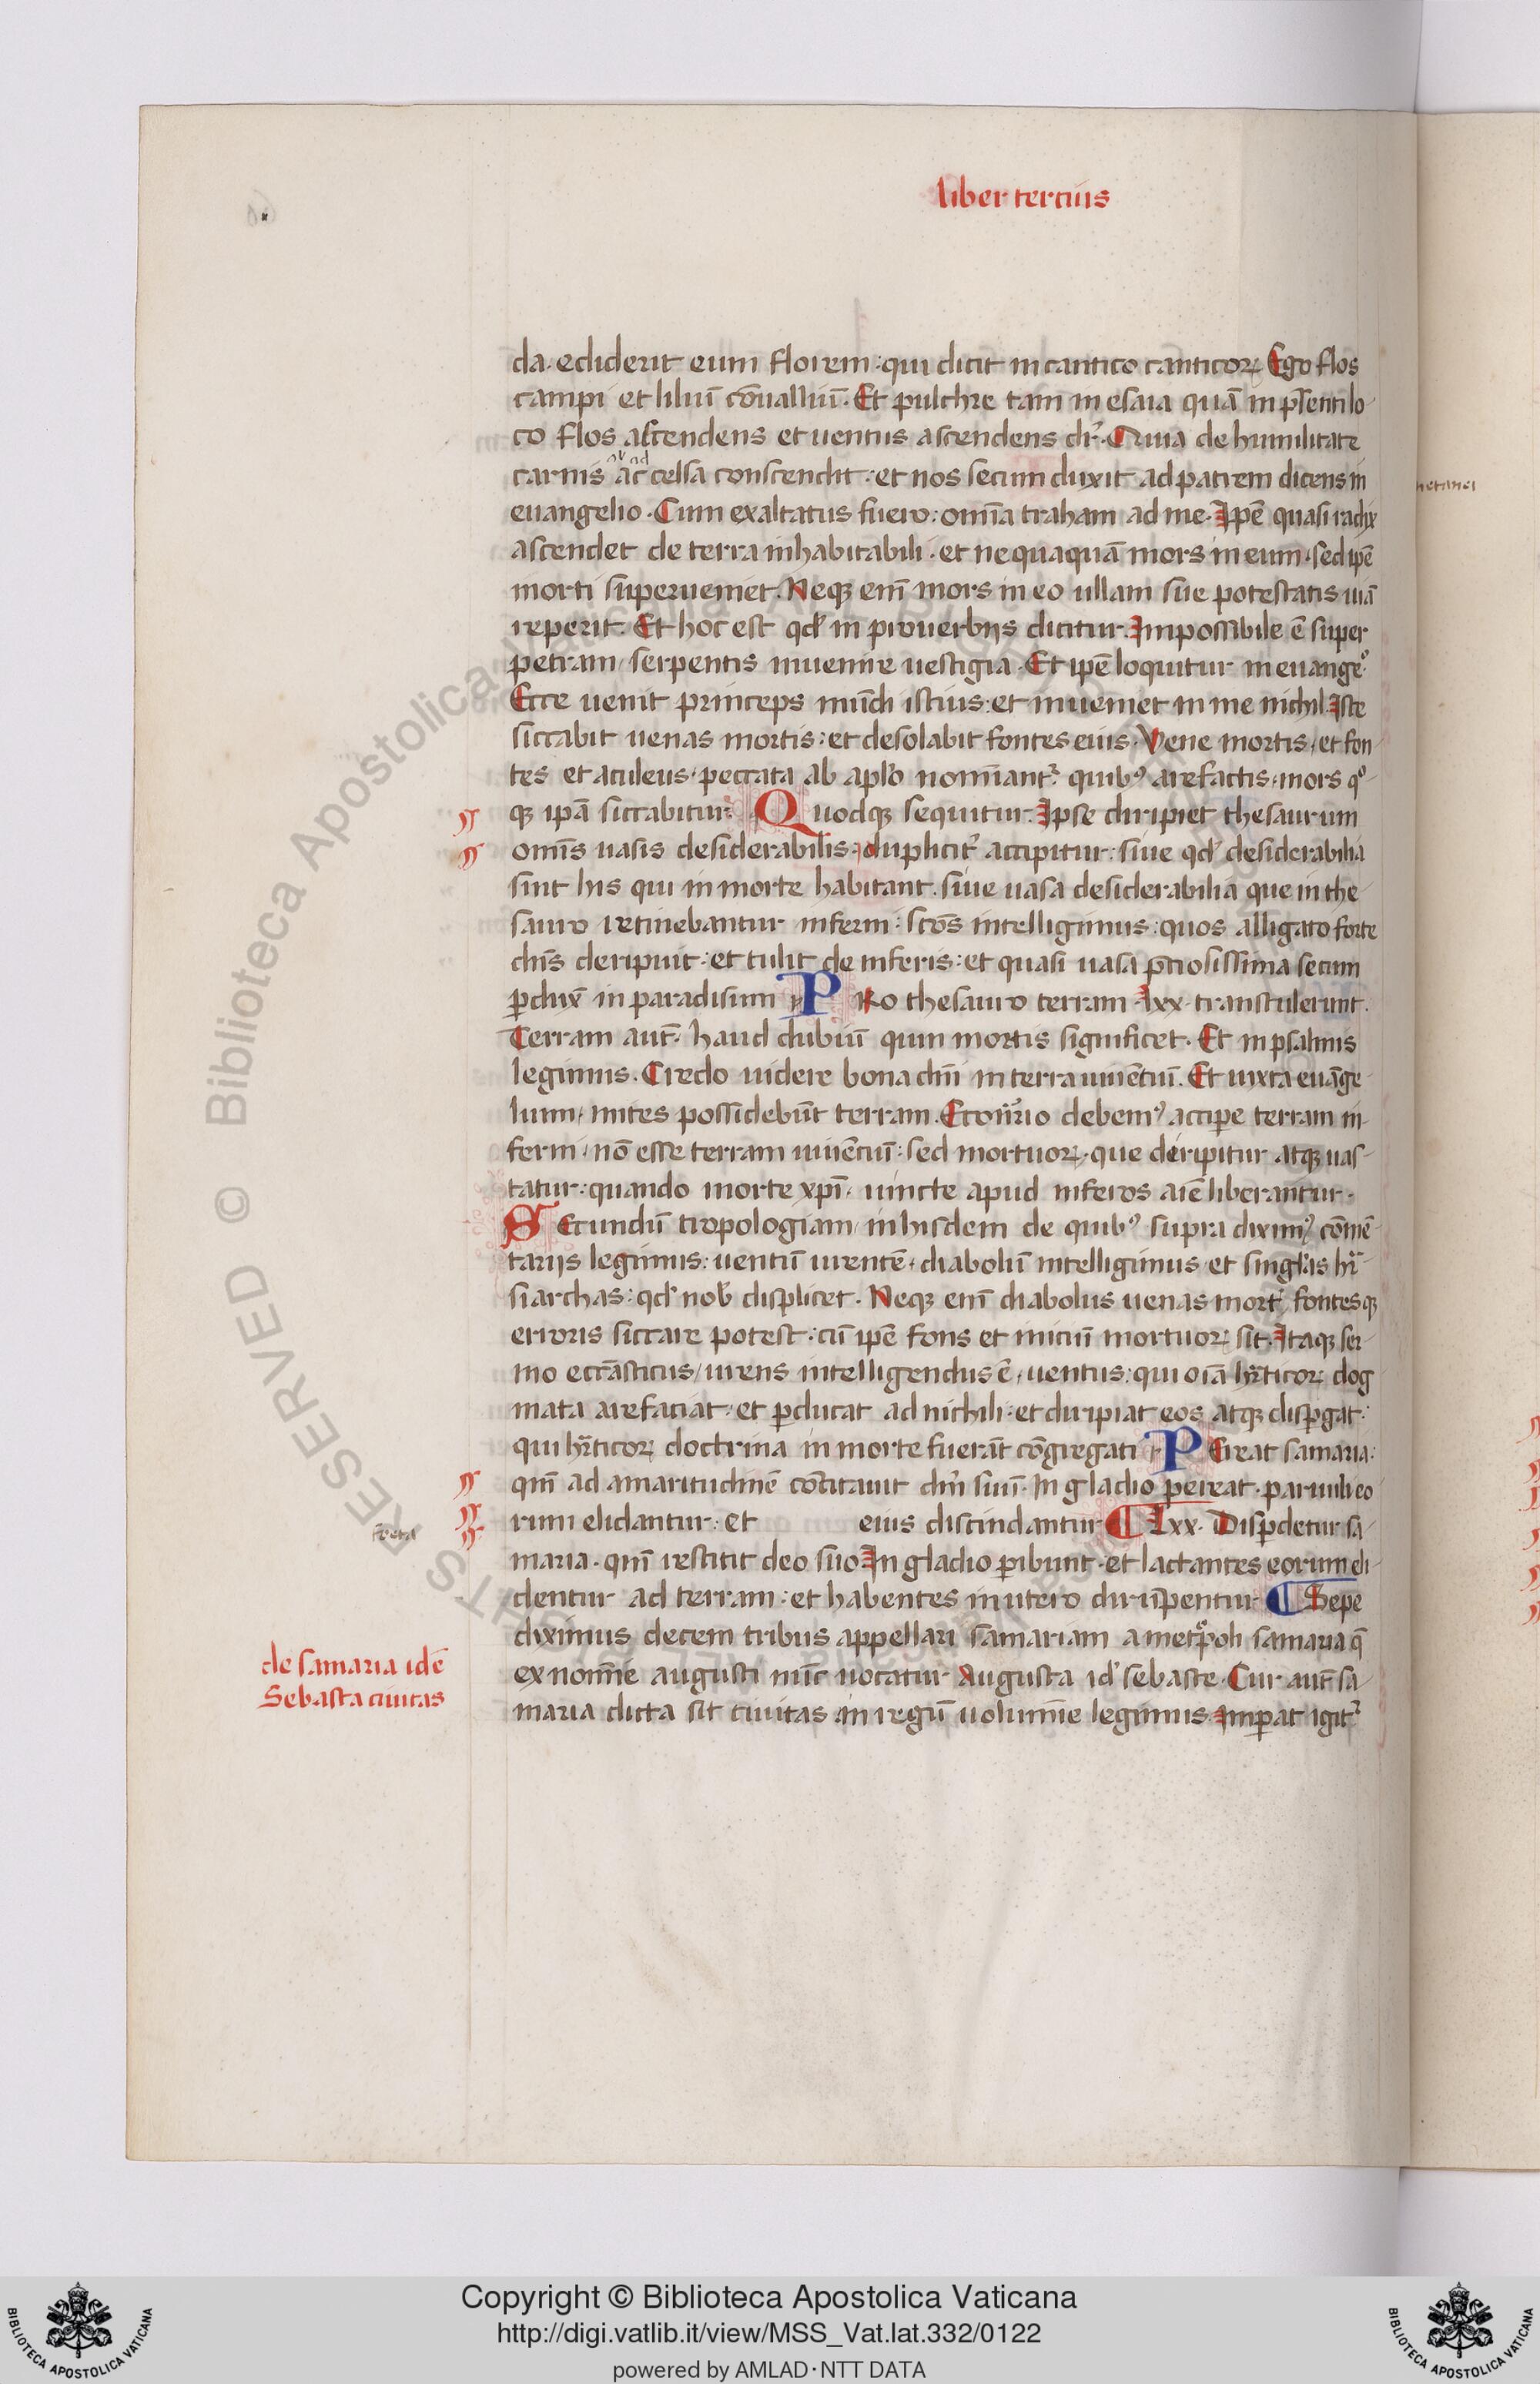 liber tercius
da. ediderit eum florem: qui dicit in cantico canticoꝝ. Ego flos
campi et liliū cōualliū. Et pulchre tam in esaia quā in pr̄senti lo-
co flos ascendens et uentus ascendens dr̄. Quia de humilitate
carnis ac celsa conscendit: et nos secum duxit ad patrem dicens in
euangelio. Cum exaltatus fuero: omīa traham ad me. Ipē quasi radix
ascendet de terra inhabitabili. et nequaquā mors in eum. sed ipē
morti superueniet. Neqꝫ enī mors in eo ullam sue potestatis uiā
reperit. Et hoc est qđ in prouerbijs dicitur. Impossibile ē super
petram / serpentis inuenire uestigia. Et ipē loquitur in euangeº.
Ecce uenit princeps mūdi istius: et inueniet in me nichil. Iste
siccabit uenas mortis: et desolabit fontes eius. Vene mortis / et fon
tes et aculeus / peccata ab apło nominantᷣ quibꝰ arefactis / mors qº-
qꝫ ipā siccabitur. Quodqꝫ sequitur. Ipse diripiet thesaurum
omīs uasis desiderabilis. duplicitᷣ accipitur: siue qđ desiderabilia
sint his qui in morte habitant. siue uasa desiderabilia que in the-
sauro retinebantur inferni: scōs intelligimus: quos alligato forte
dn̄s deripuit: et tulit de inferis: et quasi uasa p̄ciosissima secum
ꝑduxͭ in paradisum PRo thesauro terram lxx. transtulerunt.
Terram aut̄. haud dubiū quin mortis significet. Et in psalmis
legimus. Credo uidere bona dn̄i in terra uiuētiū. Et iuxta euāge-
lium / mites possidebūt terram. Econͣrio debemꝰ acciꝑe terram in-
ferni / nō esse terram uiuētiū: sed mortuoꝝ. que deripitur atqꝫ uas-
tatur: quando morte xp̄i. uincte apud inferos aīe liberantur.
SEcundū tropologiam / in hisdem de quibꝰ supra diximꝰ cōmē-
tarijs legimus: uentū urentē. diabolū intelligimus et singłas hr̄-
siarchas: qđ nob̄ displicet. Neqꝫ enī diabolus uenas mortꝭ fontesqꝫ
erroris siccare potest: cū ipē fons et iniciū mortuoꝝ sit. Itaqꝫ ser-
mo ecclāsticus / urens intelligendus ē / uentus: qui oīa hr̄ticoꝝ dog
mata arefaciat: et ꝑducat ad nichili: et diripiat eos atqꝫ disꝑgat:
qui hr̄ticoꝝ doctrina in morte fuerāt cōgregati PEreat samaria:
qm̄ ad amaritudinē cōcitauit dn̄m suū. In gladio pereat. paruuli eo
rum elidantur: et eius discindantur Lxx. Disꝑdetur sa-
maria. qm̄ restitit deo suo In gladio ꝑibunt. et lactantes eorum eli-
dentur ad terram: et habentes in utero dirūpentur Sepe
diximus decem tribus appellari samariam a metºpoli samaria q̄
ex nomīe augusti nūc uocatur Augusta id̄ sebaste. Cur aut̄ sa-
maria dicta sit ciuitas in regū uolumīe legimus. Imꝑat igitᷣ
de samaria idē
Sebasta ciuitas
Biblioteca Apostolica Vaticana
Copyright © Biblioteca Apostolica Vaticana
http://digi.vatlib.it/view/MSS_Vat.lat.332/0122
powered by AMLAD·NTT DATA
BIBLIOTECA APOSTOLICA VATICANA
BIBLIOTECA APOSTOLICA VATICANA